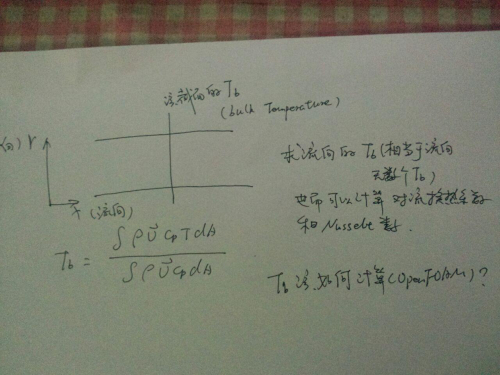 该截面的 Tb
(bulk Temperature)
向) Y
X (流向)
Tb = ∫ρU⃗CpTdA / ∫ρU⃗CpdA
求流向的 Tb (相当于流向
无数个 Tb)
也即可以计算对流换热系数
和 Nusselt 数.
Tb 该如何计算(OpenFOAM)?